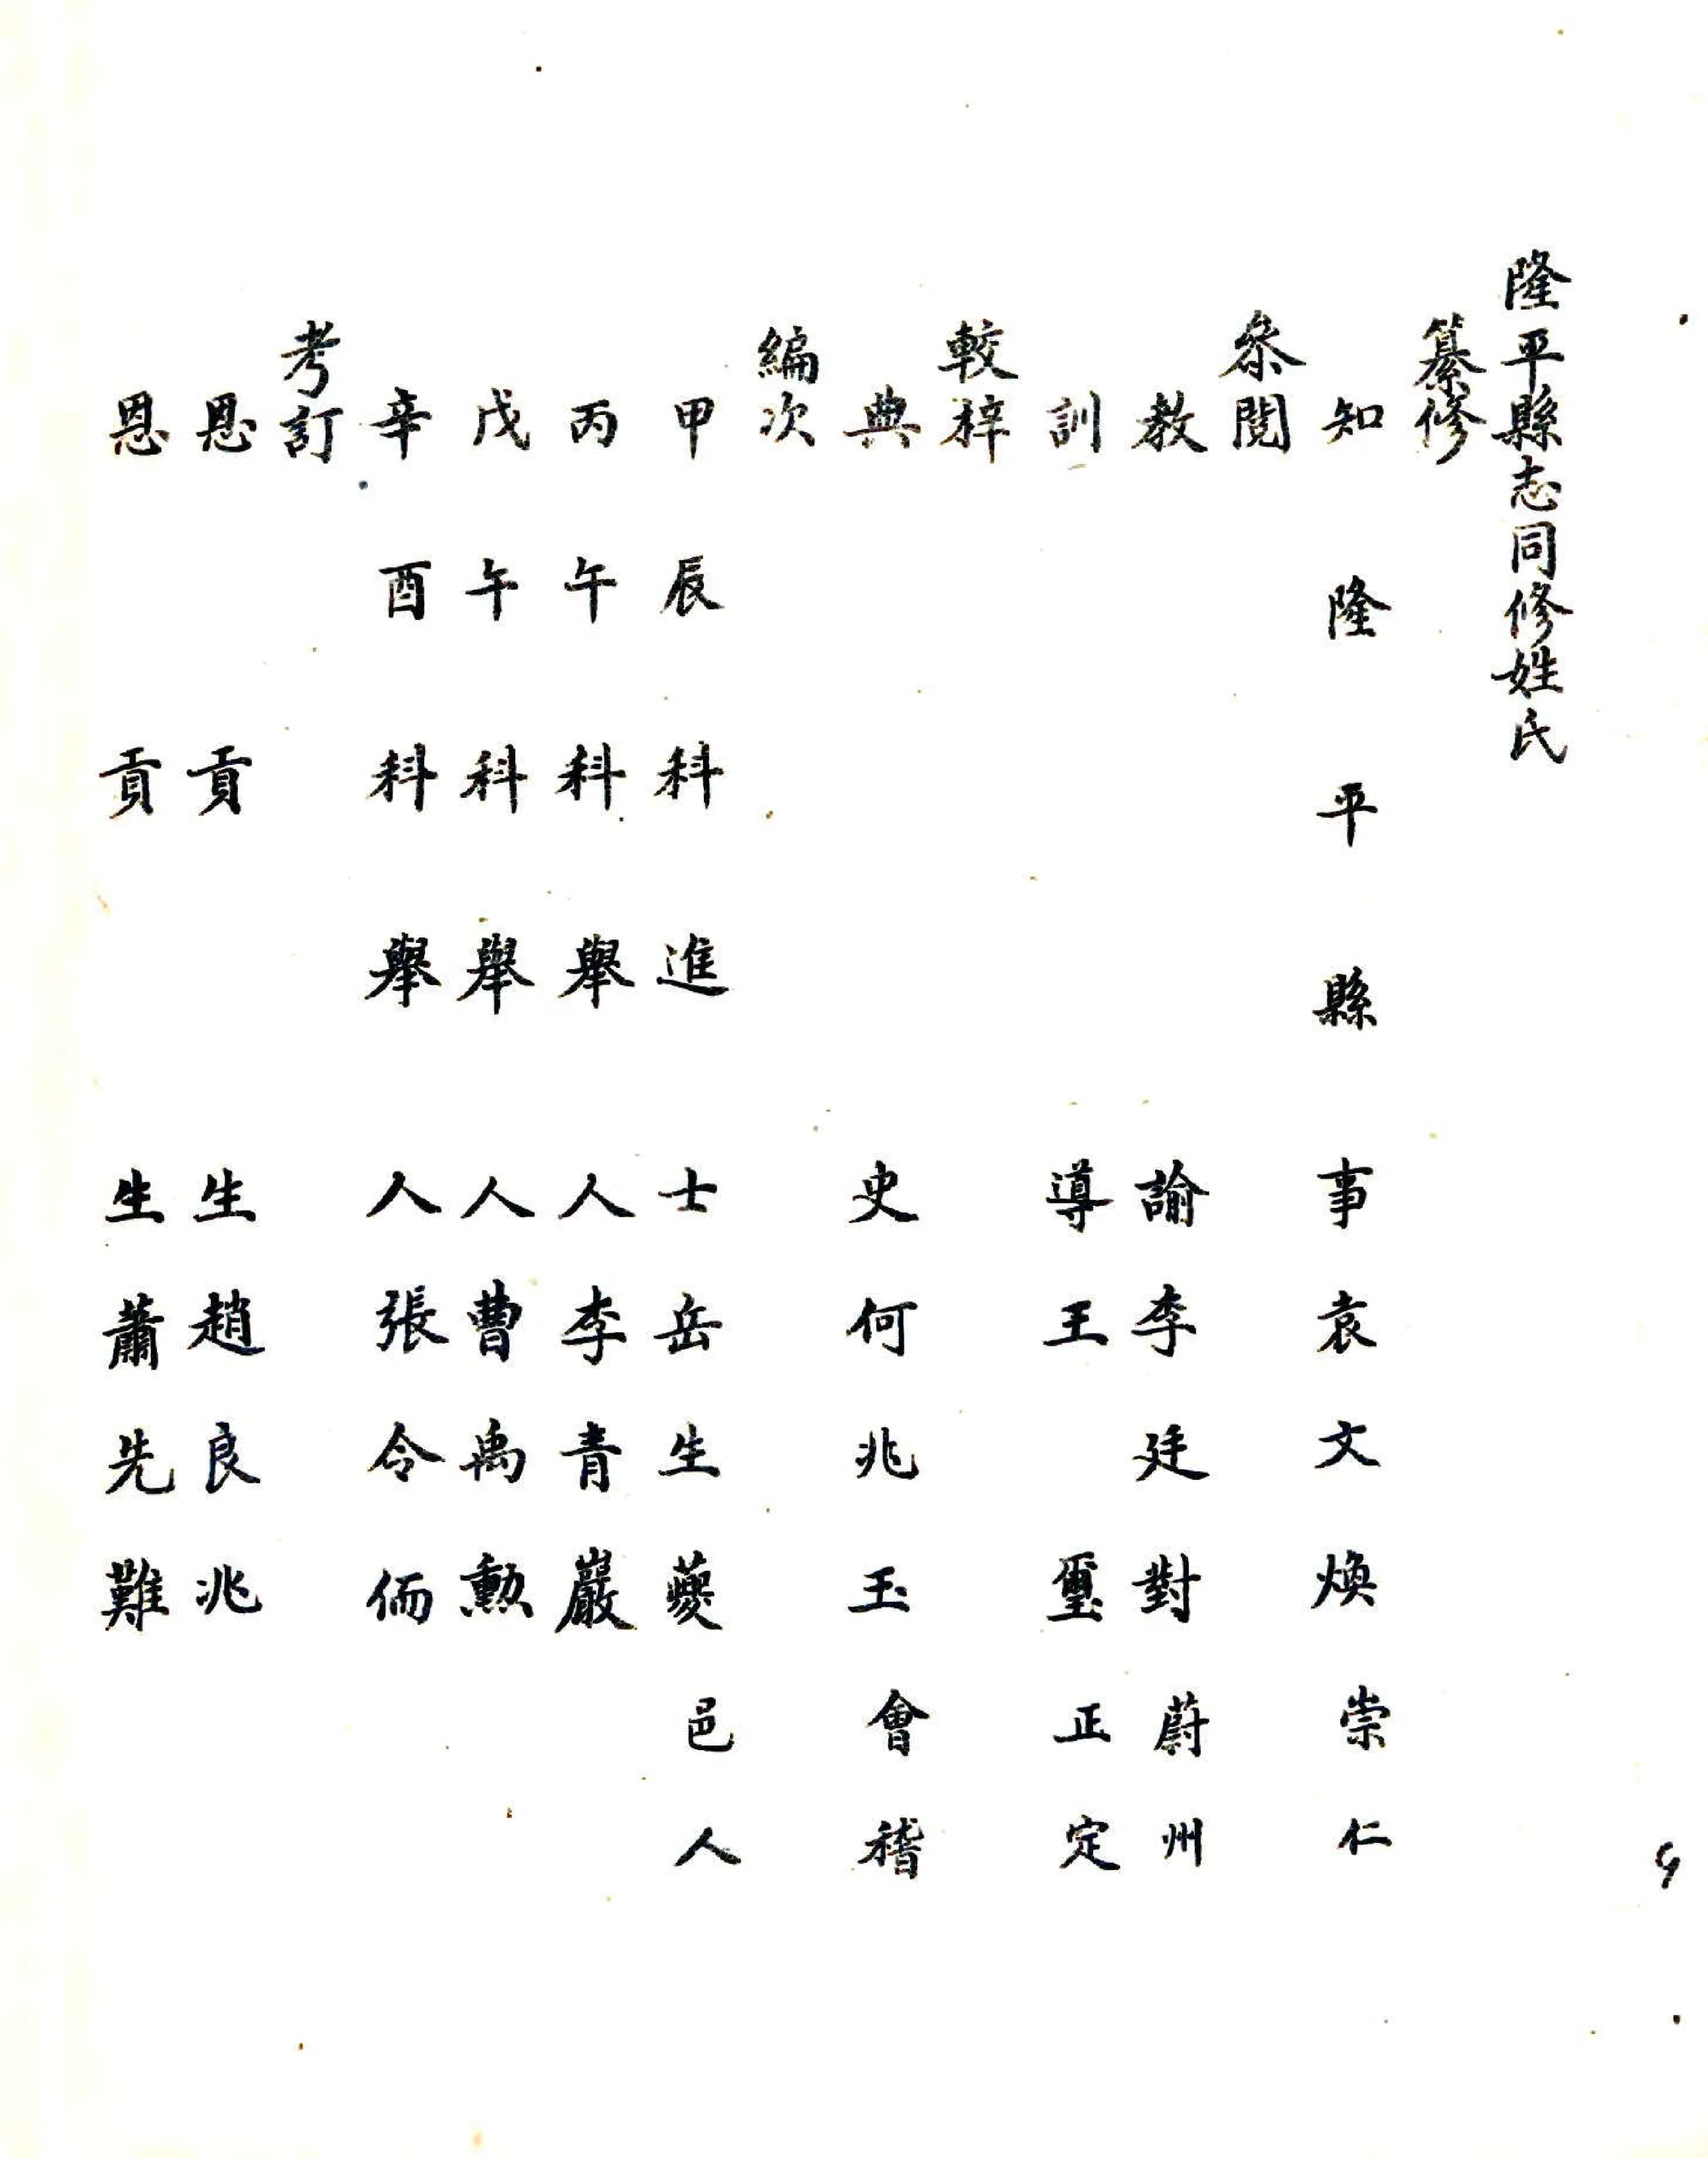 隆平縣志同修姓氏
纂修
知隆平縣事袁文煥崇仁
叅閱
教諭李廷對蔚州
訓導王璽正定
較梓
典史何兆玉會稽
編次
甲辰科進士岳生夔邑人
丙午科舉人李青巖
戊午科舉人曹禹勲
辛酉科舉人張令侕
考訂
恩貢生趙良兆
恩貢生蕭先難